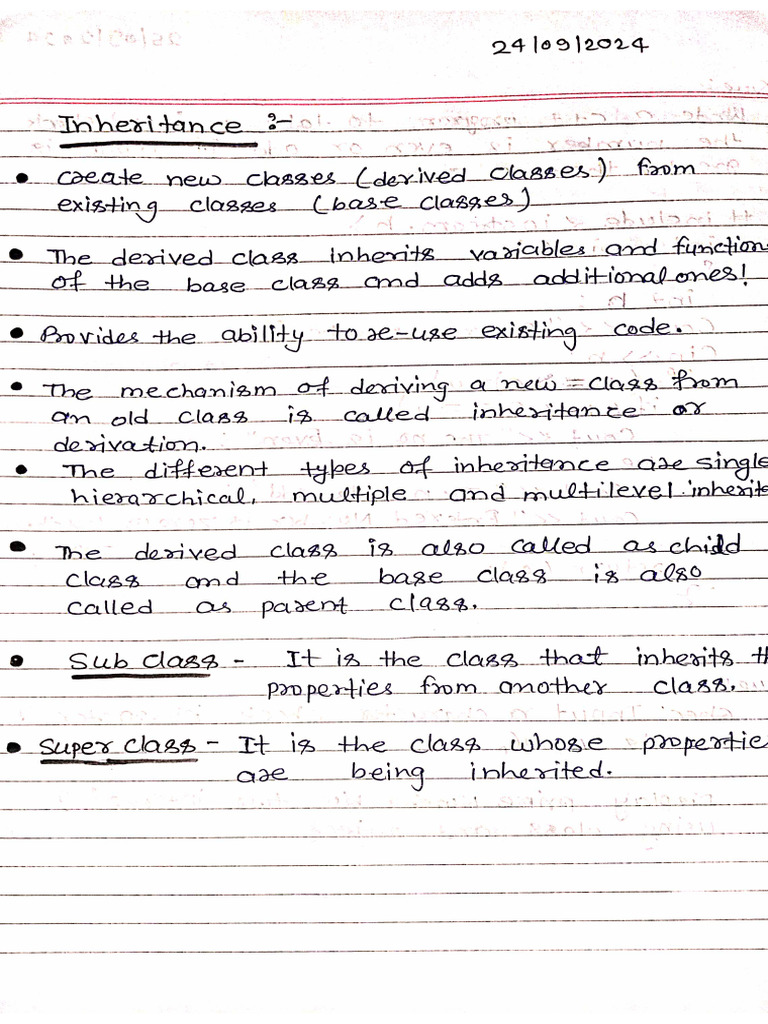 24/09/2024
Inheritance :-
• Create new classes (derived classes) from
existing classes (base classes)
• The derived class inherits variables and function
of the base class and adds additional ones!
• Provides the ability to re-use existing code.
• The mechanism of deriving a new = class from
an old class is called inheritance or
derivation.
• The different types of inheritance are single
hierarchical, multiple and multilevel inherite
• The derived class is also called as child
class and the base class is also
called as parent class.
• Sub class - It is the class that inherits th
properties from another class.
• Super class - It is the class whose propertie
are being inherited.